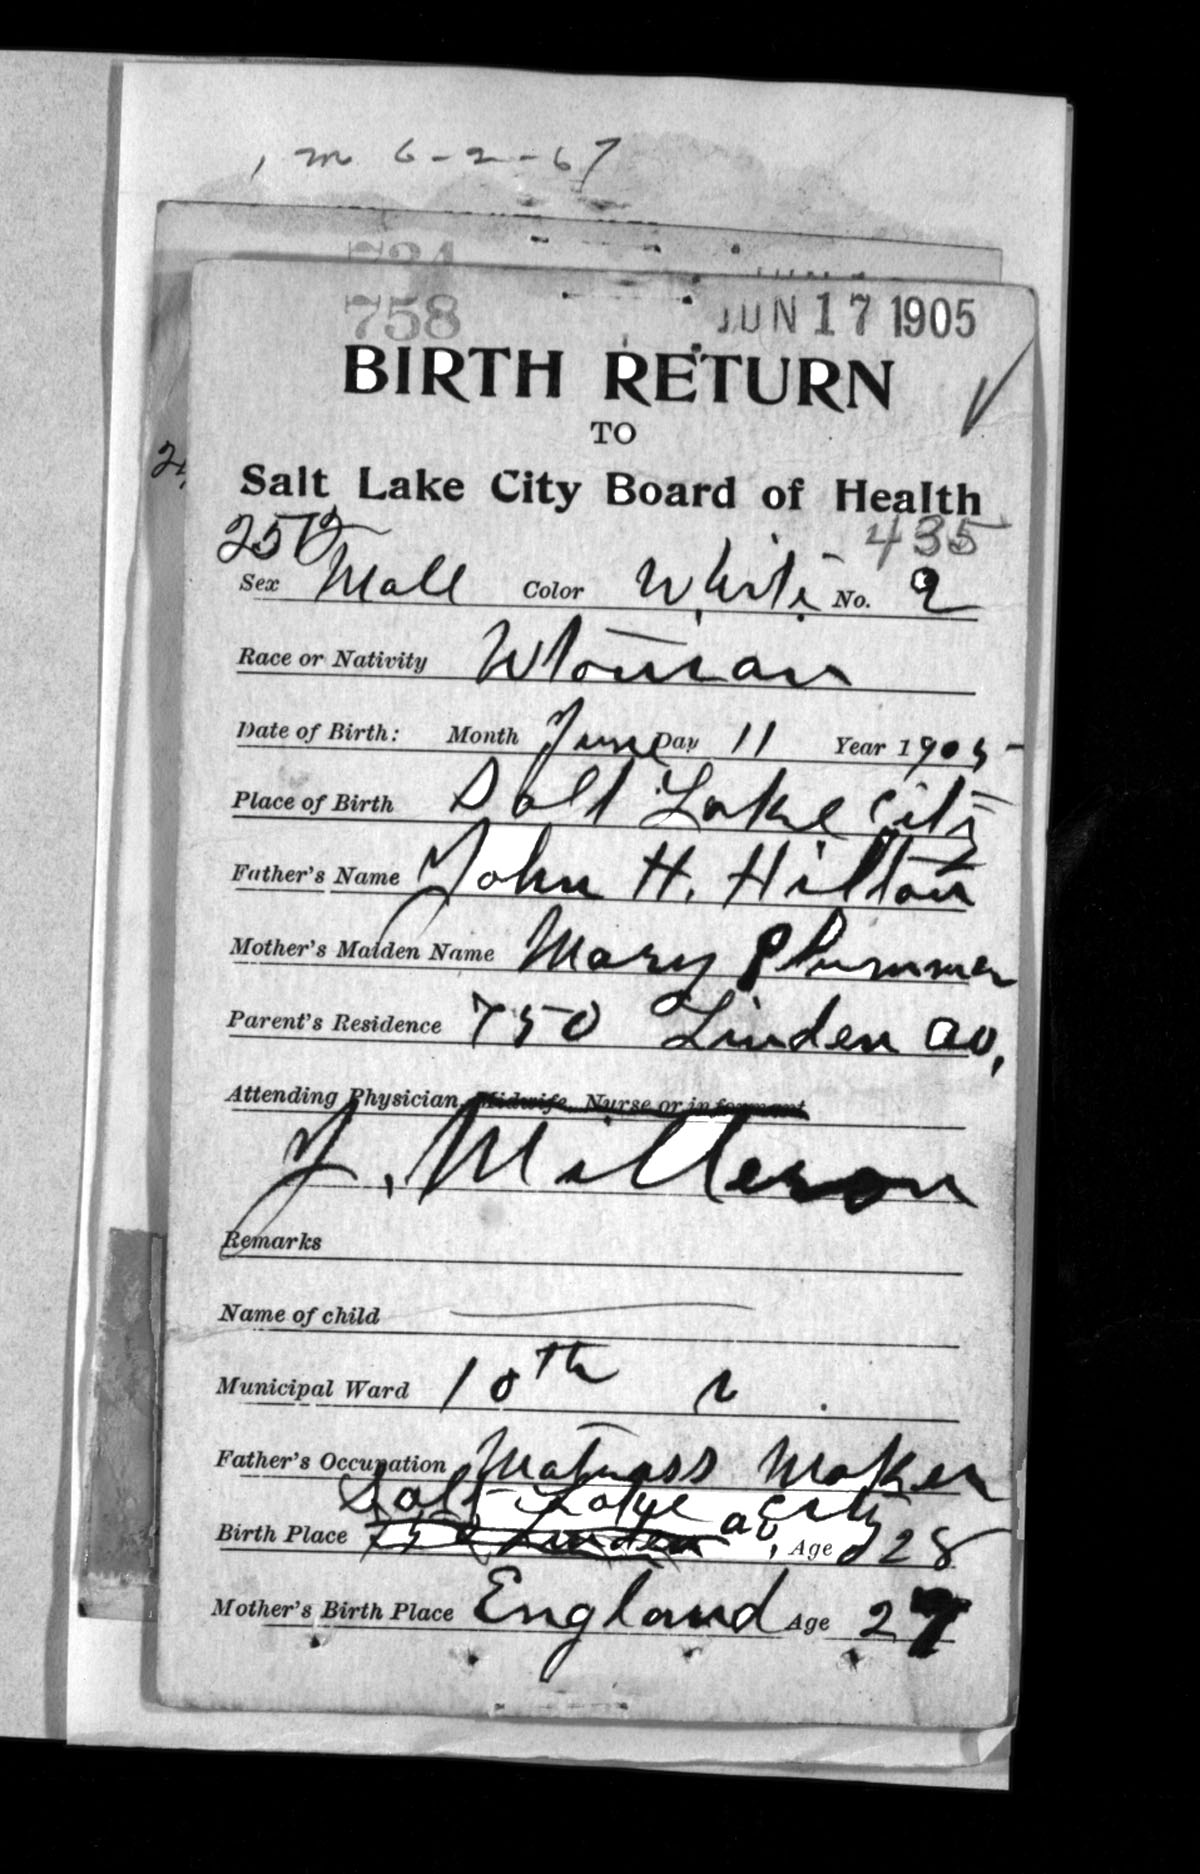 m 6-2-67
724
758 JUN 17 1905
BIRTH RETURN
TO
Salt Lake City Board of Health
435
Sex Male Color White No. 2
Race or Nativity
Date of Birth: Month June Day 11 Year 1905
Place of Birth Salt Lake City
Father's Name John H. Hilton
Mother's Maiden Name Mary Plummer
Parent's Residence 750 Linden av,
Attending Physician, Midwife, Nurse or informant
Remarks
Name of child
Municipal Ward 10th
Father's Occupation Matrass Maker
Salt Lake City
Birth Place 750 Linden av, Age 28
Mother's Birth Place England Age 27